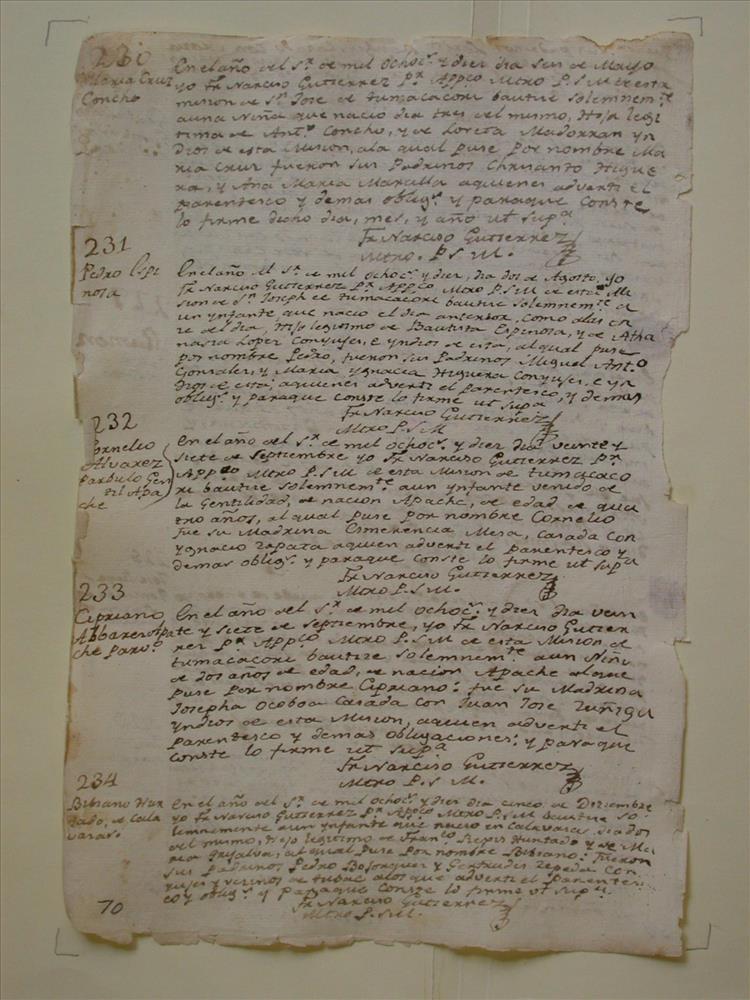 230
Maria Cruz
Concho
En el año del Sr. de mil ochoc.s y diez dia seis de Mayo
yo Fr. Narciso Gutierrez Pr. Appco Mtro P.S.M de esta
mision de Sn. Jose de tumacacori bautize solemnem.te
a una Niña que nacio dia tres del mismo, Hija legi
tima de Ant.o Concho, y de Loreta Madorran yn
dios de esta Mision, ala qual puse por nombre Ma
ria Cruz fueron sus Padrinos Chrisanto Higue
ra, y Ana Maria Marcilla aquienes adverti el
parentesco y demas oblig.s y paraque conste
lo firme dicho dia, mes, y año ut sup.a
Fr. Narciso Gutierrez
Mtro. P. S. M.
231
Pedro Espi
nosa
En el año del Sr. de mil ochoc.s y diez, dia dos de Agosto, yo
Fr. Narciso Gutierrez Pr. Appco Mtro P.S.M de esta Mi
sion de Sn. Joseph de tumacacori bautize solemnem.te a
un ynfante que nacio el dia anterior, como alas on
ze del dia, Hijo legitimo de Bautista Espinosa, y de Atha
nasia Lopez Conyuges, e yndios de esta, al qual puse
por nombre Pedro, fueron sus Padrinos Miguel Ant.o
Gonzales, y Maria ygnacia Higuera conyuges, e yn
dios de esta; aquienes adverti el parentesco, y demas
oblig.s y paraque conste lo firme ut sup.a
Fr. Narciso Gutierrez
Mtro P.S.M
232
Cornelio
Alvarez
parbulo Gen
til Apa
che
En el año del Sr. de mil ochoc.s y diez dia veinte y
siete de septiembre yo Fr. Narciso Gutierrez Pr.
Appco Mtro P.S.M de esta Mision de tumacaco
ri bautize solemnem.te aun ynfante venido de
la Gentilidad, de nacion Apache, de edad de qua
tro años, al qual puse por nombre Cornelio
fue su Madrina Esmerencia Mesa, casada con
ygnacio zapata aquien adverti el parentesco y
demas oblig.s y paraque conste lo firme ut sup.a
Fr. Narciso Gutierrez
Mtro P.S.M.
233
Cipriano
che parv.o
En el año del Sr. de mil ochoc.s y diez dia vein
te y siete de septiembre, yo Fr. Narciso Gutier
rez Pr. Appco Mtro P.S.M de esta Mision, de
tumacacori bautize solemnem.te aun Niño
de dos años de edad, de nacion Apache alque
puse por nombre Cipriano: fue su Madrina
Josepha Ocoboa casada con Juan Jose Zuñiga
yndios de esta Mision, aquien adverti el
parentesco y demas obligaciones: y paraque
conste lo firme ut sup.a
Fr. Narciso Gutierrez
Mtro P.S M.
234
Bibiano Hur
tado, de Cala
vazas.
En el año del Sr. de mil ochoc.s y diez dia cinco de Diziembre
yo Fr. Narciso Gutierrez Pr. Appco Mtro P.S.M bautize so
lemnemente aun ynfante que nacio en Calavazas dia dos
del mismo, Hijo legitimo de Fran.co Reyes Hurtado y de Ma
ria Gryalva, al qual puse por nombre Bibiano: fueron
sus Padrinos Pedro Bojorquez y Gertrudes Zepeda con
yuges y vezinos de tubac alos que adverti el parentes
co y oblig.s y paraque conste lo firme ut sup.a
Fr. Narciso Gutierrez
Mtro P.S.M.
70